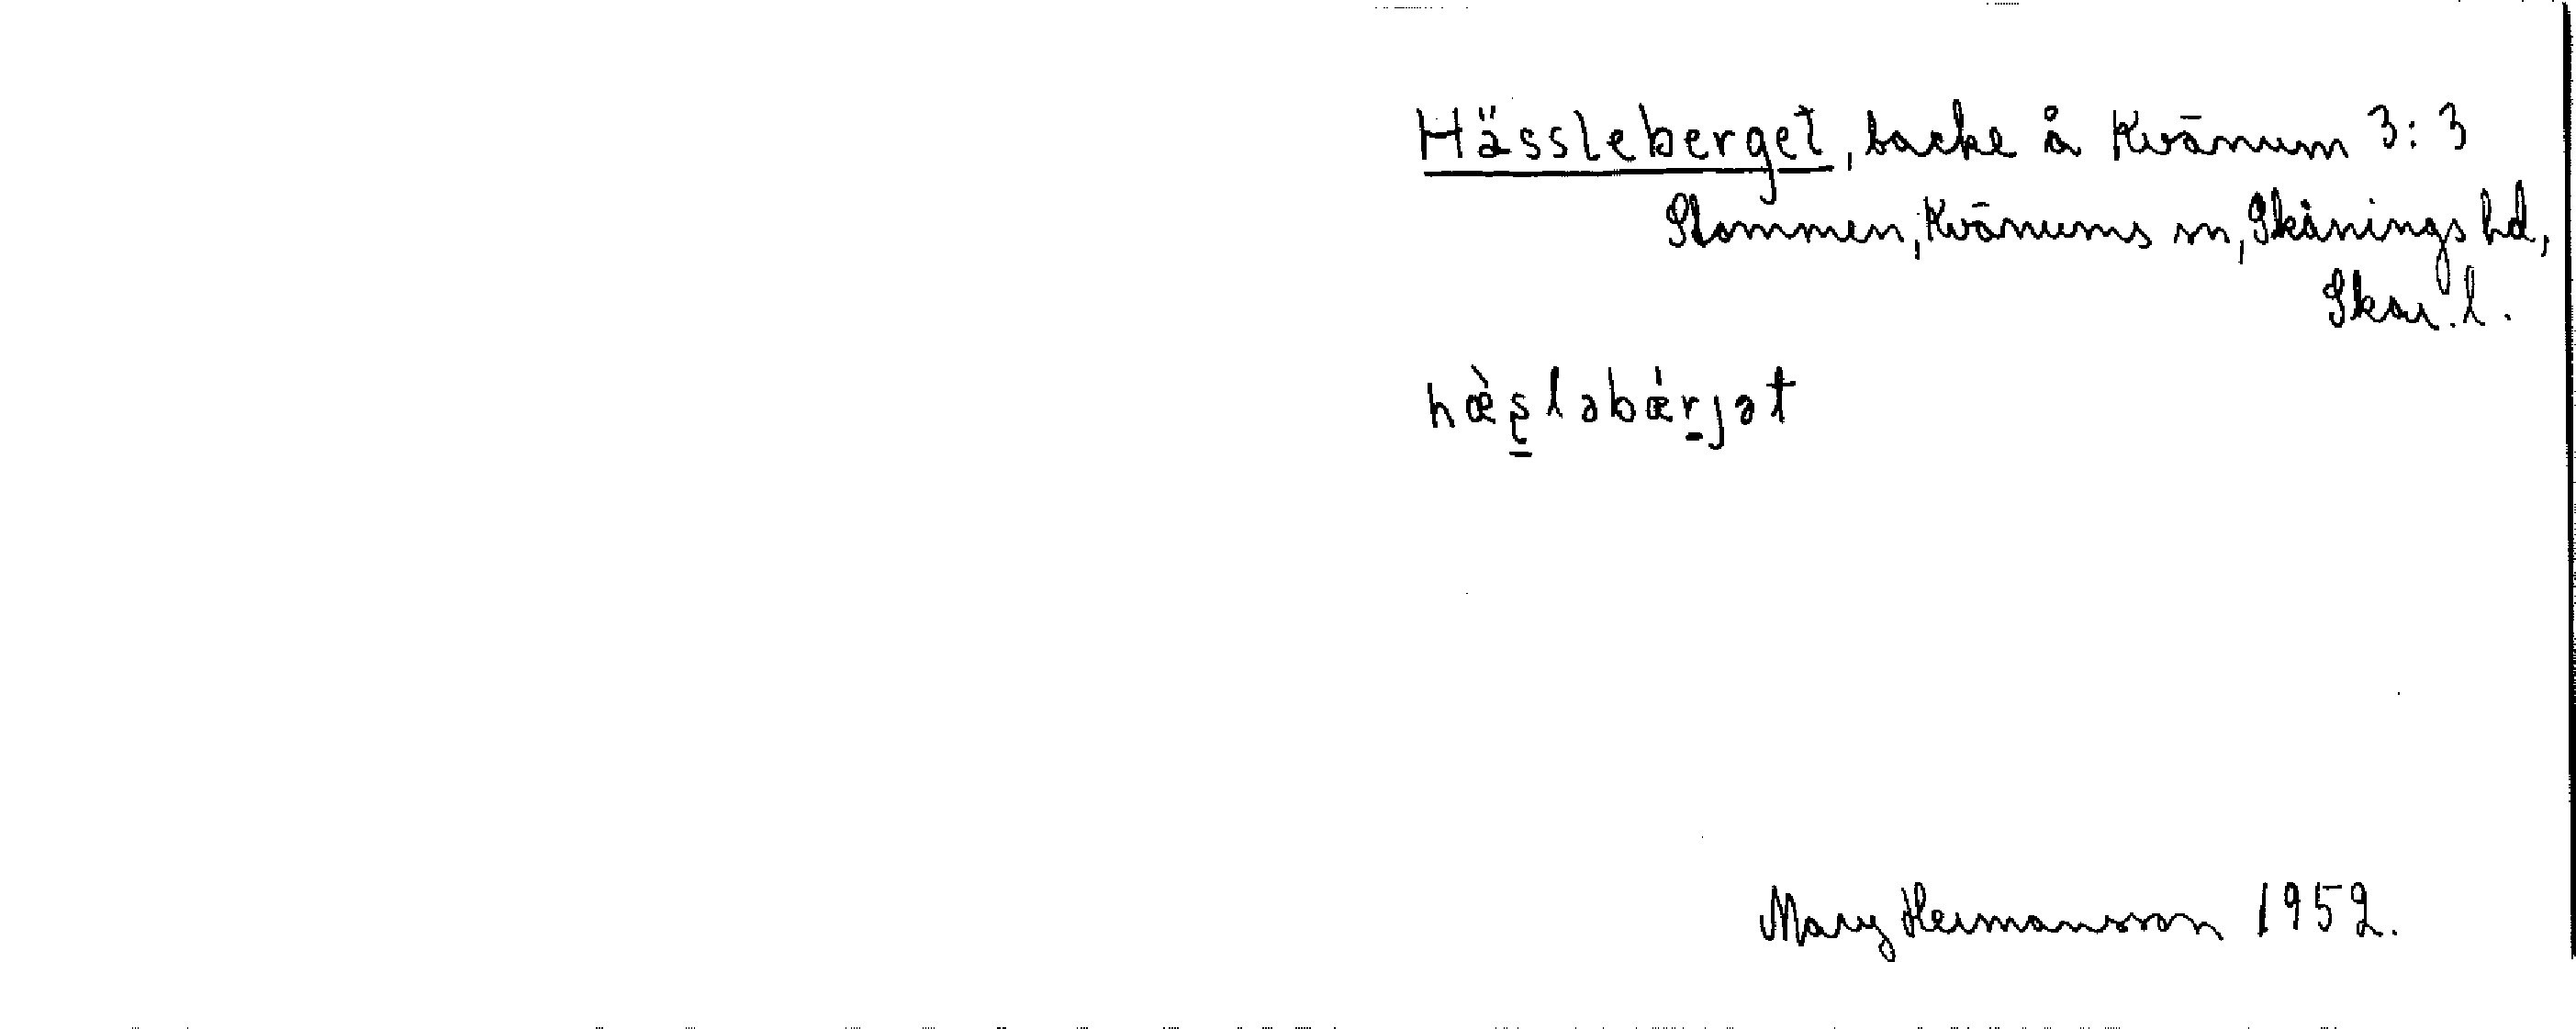 Hässleberget, backe å Kvänum 3:3
Stommen, Kvänums sn, Skånings hd,
Skar. l.
hæ̀s̠ləbǽr̠jət
Mary Hermansson 1952.